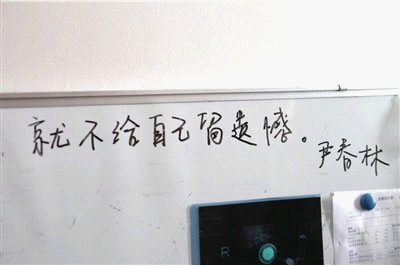 就不给自己留遗憾。
尹春林
R